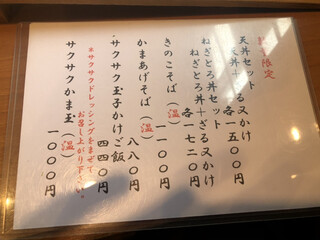 数量限定
天丼セット
天丼+ざる又かけ
各一五〇〇円
ねぎとろ丼セット
ねぎとろ丼+ざる又かけ
各一七二〇円
きのこそば(温)
一一〇〇円
かまあげそば(温)
八八〇円
・サクサク玉子かけご飯
四四〇円
※サクサクドレッシングをまぜて
お召し上がり下さい。
サクサクかま玉(温)
一〇〇〇円